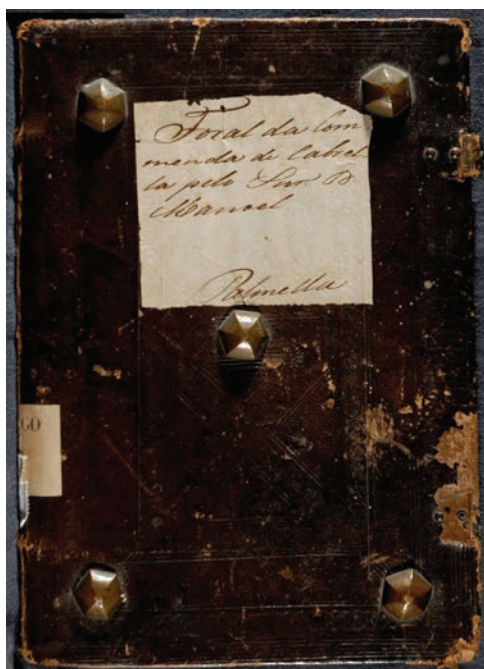 Foral da Com
menda de Cabrel
la pelo Snr D
Manoel
Palmella
GO